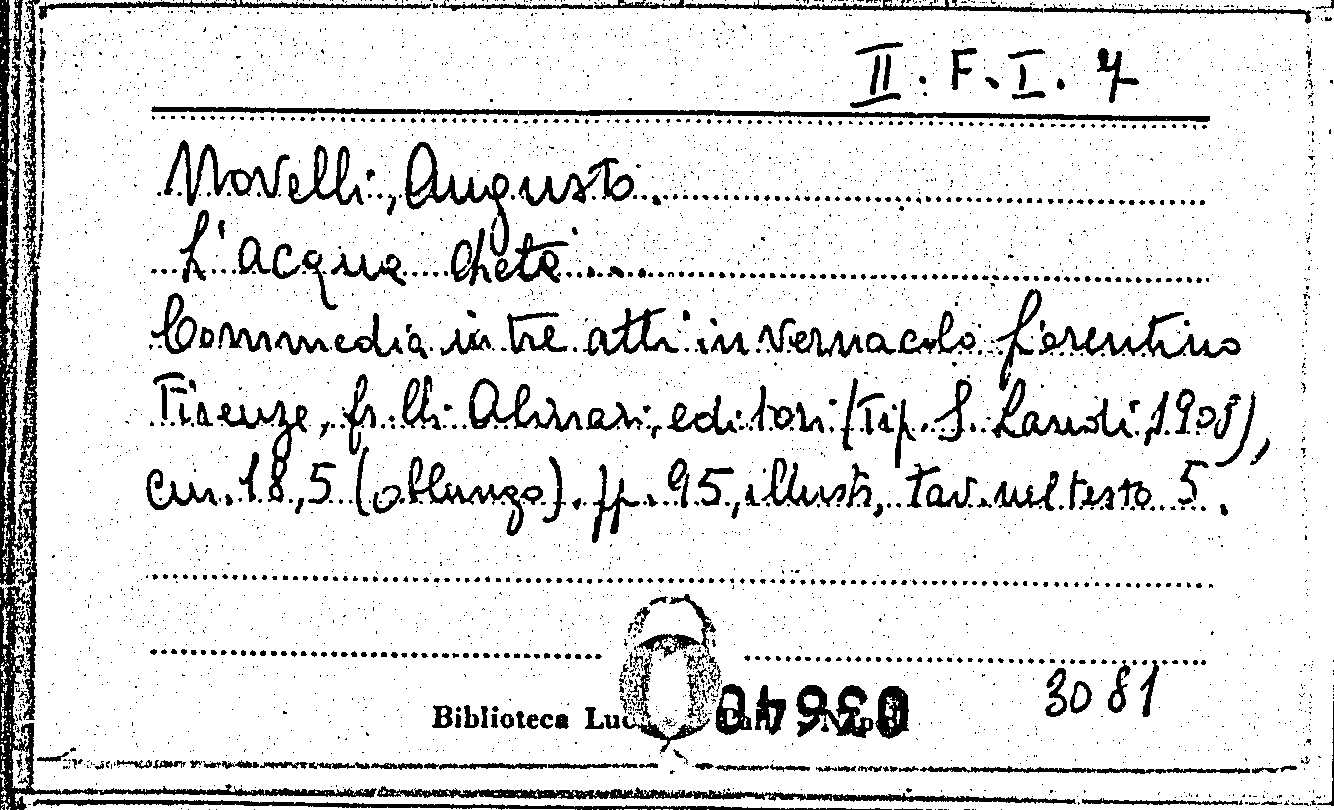 II. F. I. 7
Novelli, Augusto.
L'acqua cheta...
Commedia in tre atti in vernacolo fiorentino
Firenze, fr.lli Alinari, editori (Tip. S. Landi, 1908),
cm. 18,5 (oblungo). pp. 95, illustr., tav. nel testo 5.
3081
Biblioteca